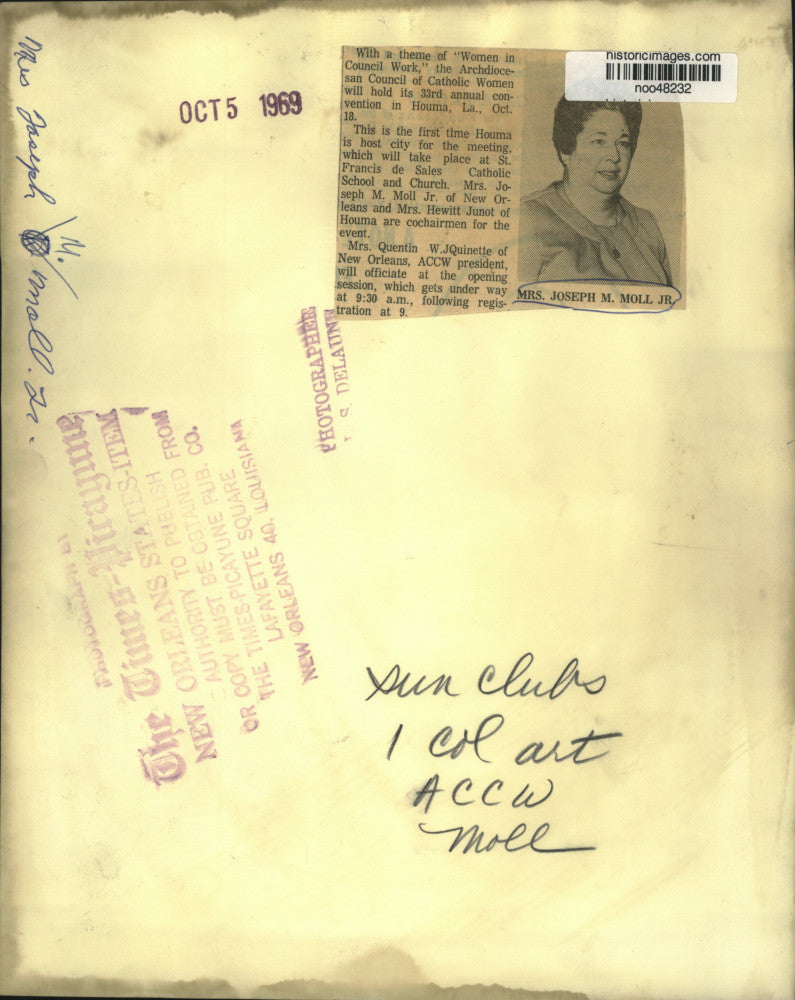 Mrs Joseph M. Moll. Jr.
OCT 5 1969
With a theme of "Women in
Council Work," the Archdioce-
san Council of Catholic Women
will hold its 33rd annual con-
vention in Houma, La., Oct.
18.
This is the first time Houma
is host city for the meeting,
which will take place at St.
Francis de Sales Catholic
School and Church. Mrs. Jo-
seph M. Moll Jr. of New Or-
leans and Mrs. Hewitt Junot of
Houma are cochairmen for the
event.
Mrs. Quentin W.JQuinette of
New Orleans, ACCW president,
will officiate at the opening
session, which gets under way
at 9:30 a.m., following regis-
tration at 9.
historicimages.com
noo48232
MRS. JOSEPH M. MOLL JR.
PHOTOGRAPHER
S. DELAUNE
PHOTOGRAPH BY
The Times-Picayune
NEW ORLEANS STATES-ITEM
AUTHORITY TO PUBLISH FROM
OR COPY MUST BE OBTAINED
THE TIMES-PICAYUNE PUB. CO.
LAFAYETTE SQUARE
NEW ORLEANS 40, LOUISIANA
Sun Clubs
1 col art
ACCW
Moll